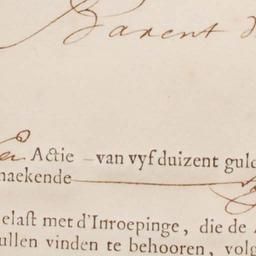 Barent d
Een Actie – van vyf duizent guld
naekende
elast met d'Inroepinge, die de
ullen vinden te behooren, volg